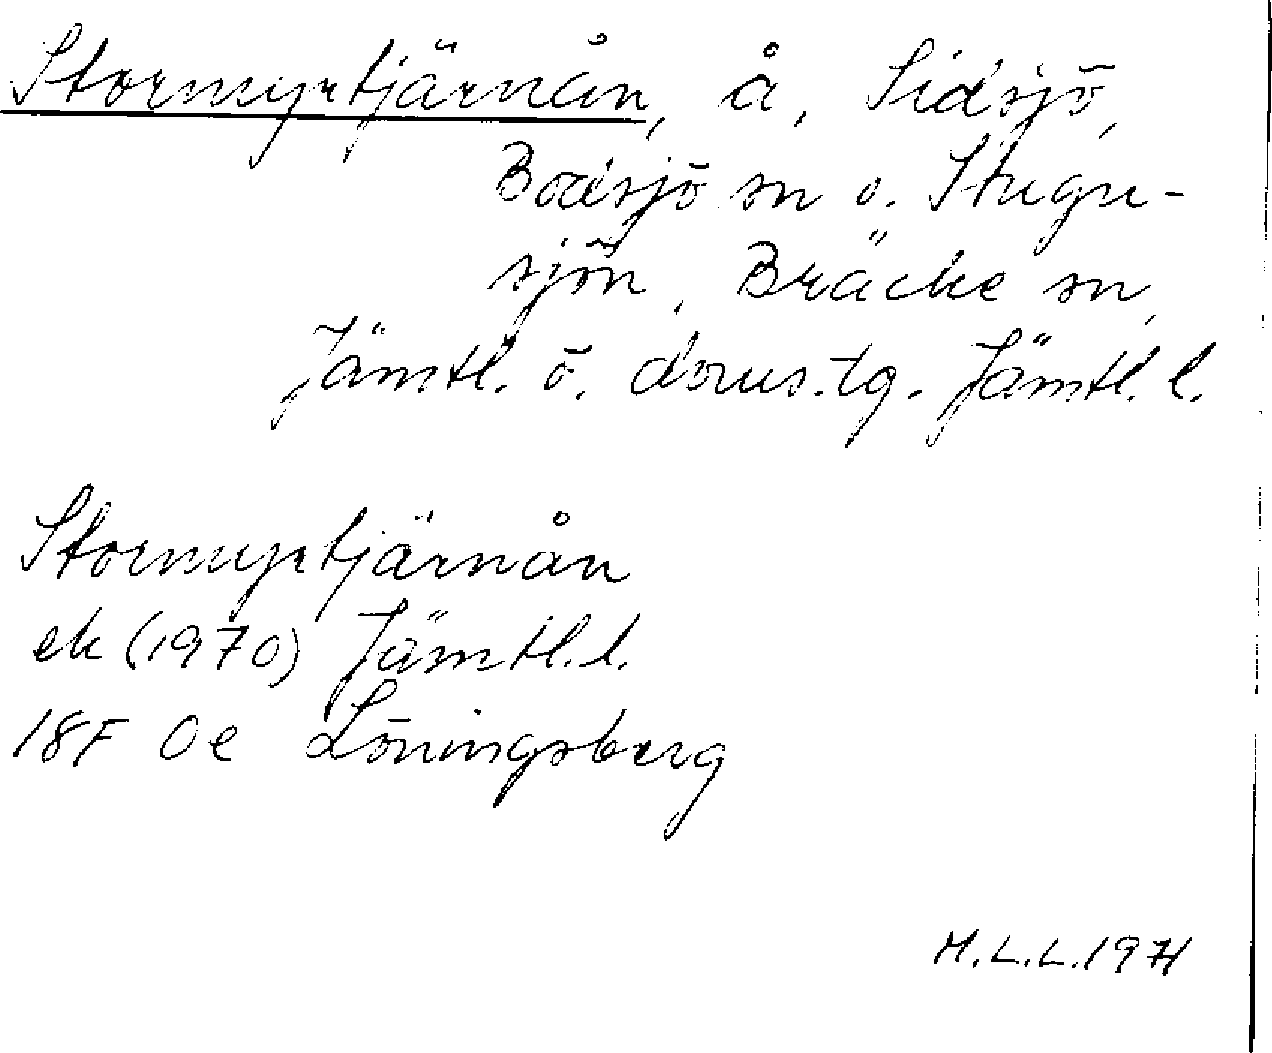 Stormyrtjärnån, å, Sidsjö,
Bodsjö sn o. Stugu-
sjön, Bräcke sn,
Jämtl. ö. doms.tg. Jämtl. l.
Stormyrtjärnån
ek (1970) Jämtl. l.
18F 0e Löningsberg
M.L.L. 1971